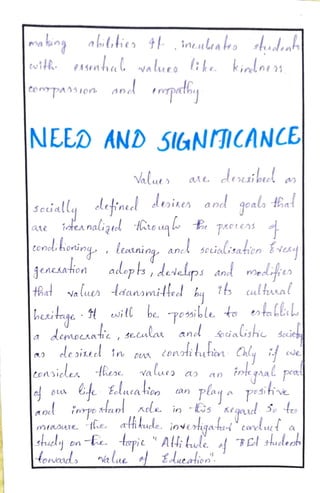 making abilities It inculcates students
with essential values like kindness
compassion and empathy
NEED AND SIGNIFICANCE
Values are described as
socially defined desires and goals that
are internalized through the process of
conditioning, learning and socialisation Every
generation adopts, develops and modifies
that values transmitted by its cultural
heritage. It will be possible to establish
a democratic, secular and socialistic society
as desired in our constitution Only if we
consider these values as an integral part
of our life Education can play a positive
and important role in this regard So to
measure the attitude investigator conduct a
study on the topic "Attitude of BEd students
towards value of Education".